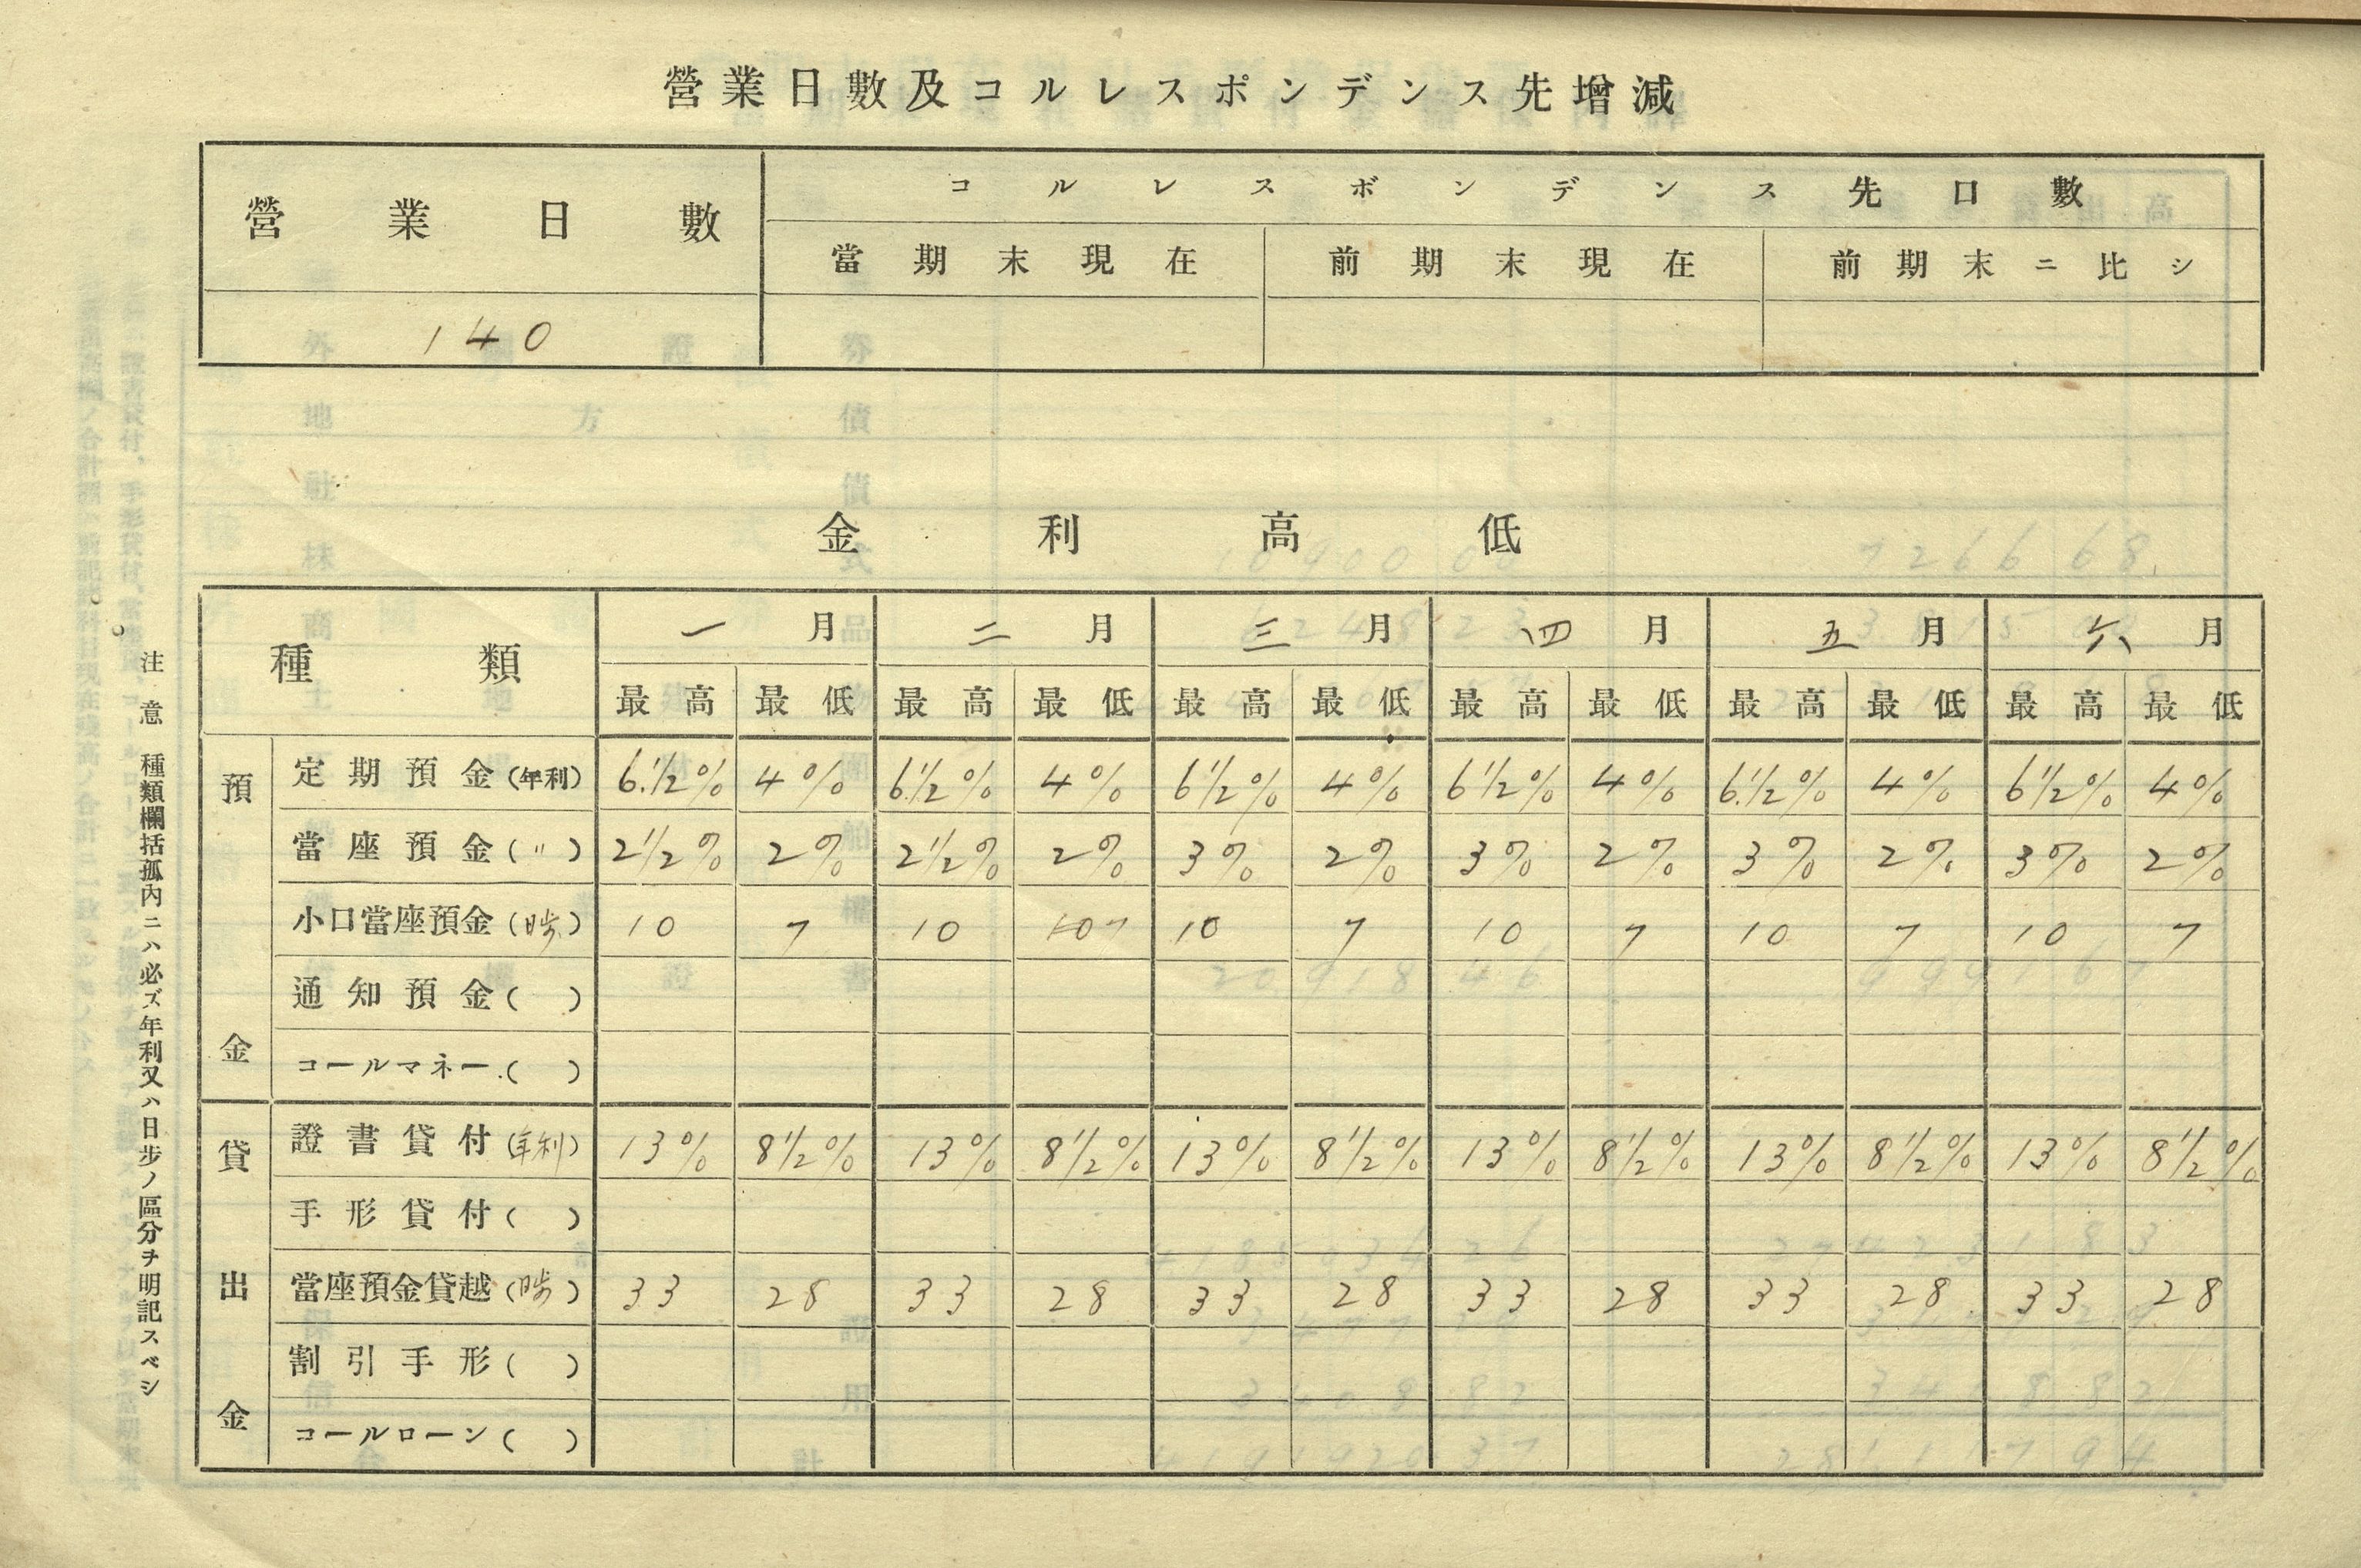 營業日數及コルレスポンデンス先增減
營業日數 コルレスポンデンス先口數
當期末現在 前期末現在 前期末ニ比シ
140
金利高低
種類 一月 二月 三月 四月 五月 六月
最高 最低 最高 最低 最高 最低 最高 最低 最高 最低 最高 最低
預金
定期預金(年利) 6.1/2% 4% 6.1/2% 4% 6 1/2% 4% 6 1/2% 4% 6.1/2% 4% 6 1/2% 4%
當座預金(〃) 2 1/2% 2% 2 1/2% 2% 3% 2% 3% 2% 3% 2% 3% 2%
小口當座預金(日歩) 10 7 10 7 10 7 10 7 10 7 10 7
通知預金( )
コールマネー( )
貸出金
證書貸付(年利) 13% 8 1/2% 13% 8 1/2% 13% 8 1/2% 13% 8 1/2% 13% 8 1/2% 13% 8 1/2%
手形貸付( )
當座預金貸越(日歩) 33 28 33 28 33 28 33 28 33 28 33 28
割引手形( )
コールローン( )
注意 種類欄括孤內ニハ必ズ年利又ハ日步ノ區分ヲ明記スベシ